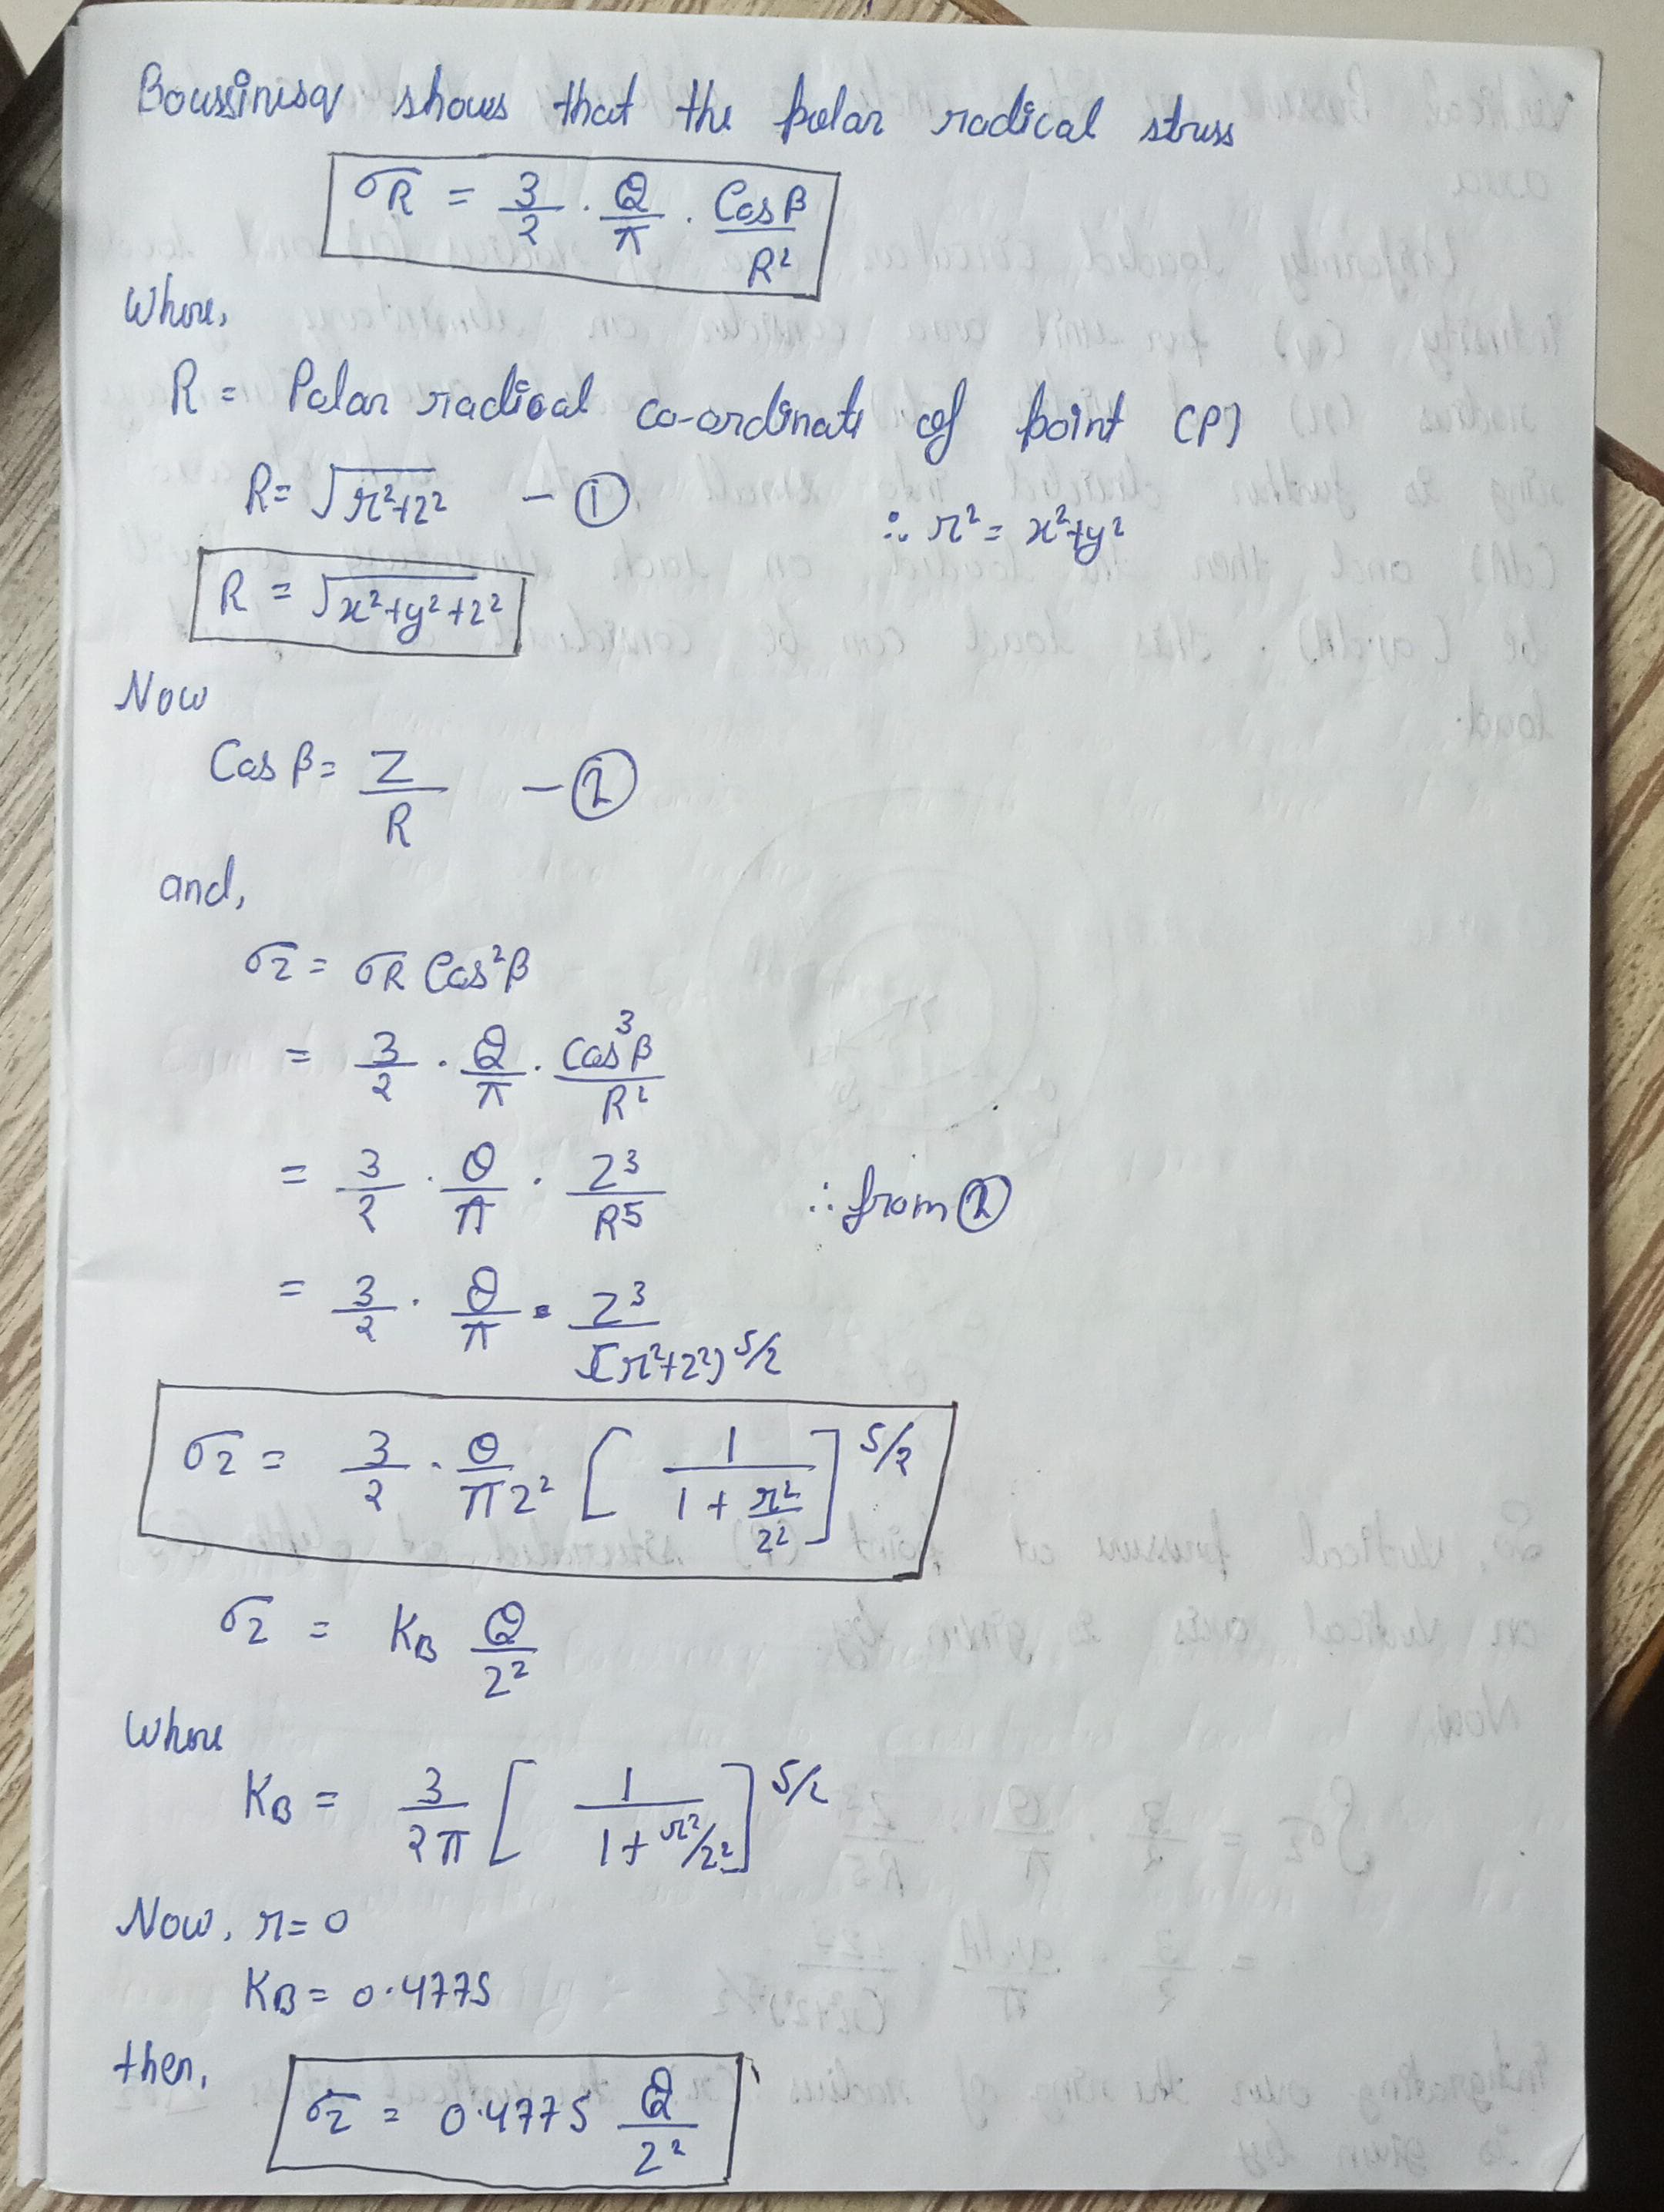 Boussinesq shows that the polar radical stress
σR = 3/2 · Q/π · Cosβ/R²
Where,
R = Polar radical co-ordinate of point (P)
R = √r²+z² - ① ∴ r² = x²+y²
R = √x²+y²+z²
Now
Cosβ = Z/R - ②
and,
σz = σR Cos²β
= 3/2 · Q/π · Cos³β/R²
= 3/2 · Q/π · Z³/R⁵ ∴ from ②
= 3/2 · Q/π · Z³/[(r²+z²)^5/2
σz = 3/2 · Q/πz² [1/(1 + r²/z²)]^5/2
σz = KB Q/z²
Where
KB = 3/2π [1/(1 + r²/z²)]^5/2
Now, r = 0
KB = 0.4775
then,
σz = 0.4775 Q/z²